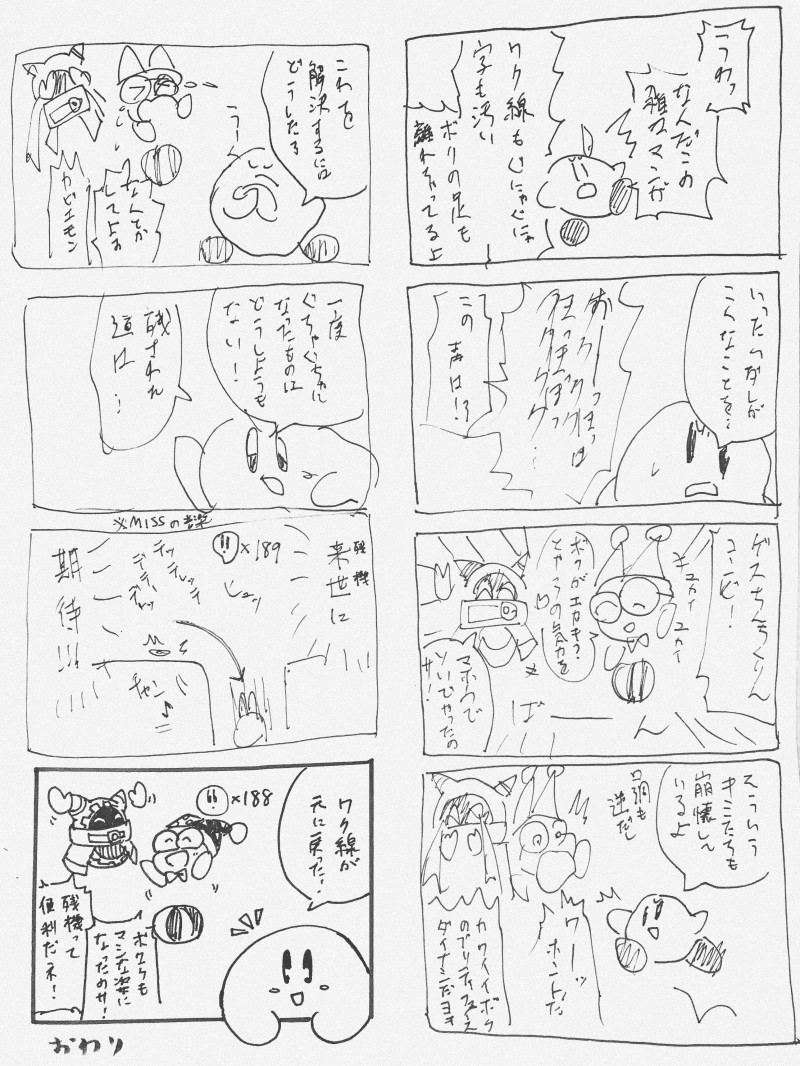 こうわっ
なんだこの
雑なマンガ
ワク線もぐにゃぐにゃ
字も汚い
ボクの足も
離れちゃってるよ
いったいダレが
こんなことを…
おーっほっほっは
この声は!?
ゲスちんちくりん
コンビ!
ユカイユカイ
ボクがエカキラ?
とやらの気力を
マホウで
ソいじゃったの
サ!
ばーーん
そういう
キミたちも
崩壊して
いるよ
口調も
逆だし
ワーッ
ホントだ
カワイイボク
のプリティフェイス
ダイナシだヨォ
これを
解決するには
どうしたら
うーん
なんとか
してよお
カビエモン
一度
ぐちゃぐちゃに
なったものは
どうしようも
ない!
残された
道は…
※MISSの音楽
残機
×189
来世に
期待!!!
ヒュッ
テッテレッテ
デデデデッ
チャン♪
ワク線が
元に戻った!
×188
ボクらも
マシな姿に
なったのサ!
残機って
便利だネ!
おわり